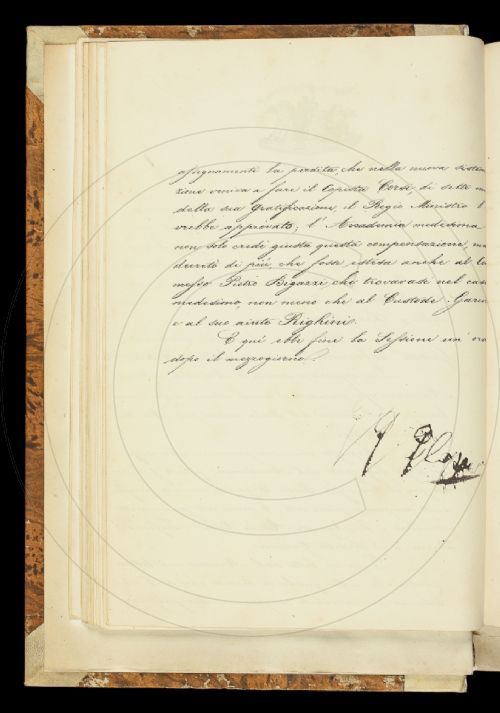 assegnamenti la perdita, che nella nuova sistem
zione veniva a fare il Copista Corsi, di sette m
della sua Gratificazione, il Regio Ministro l
vrebbe approvato; l'Accademia medesima
non solo credè giusta questa compensazione, ma
decretò di più, che fosse estesa anche al Co
messo Pietro Bigazzi, che trovavasi nel caso
medesimo, non meno che al Custode
e al suo aiuto Righini.
E quì ebbe fine la Sessione un' ora
dopo il mezzogiorno.